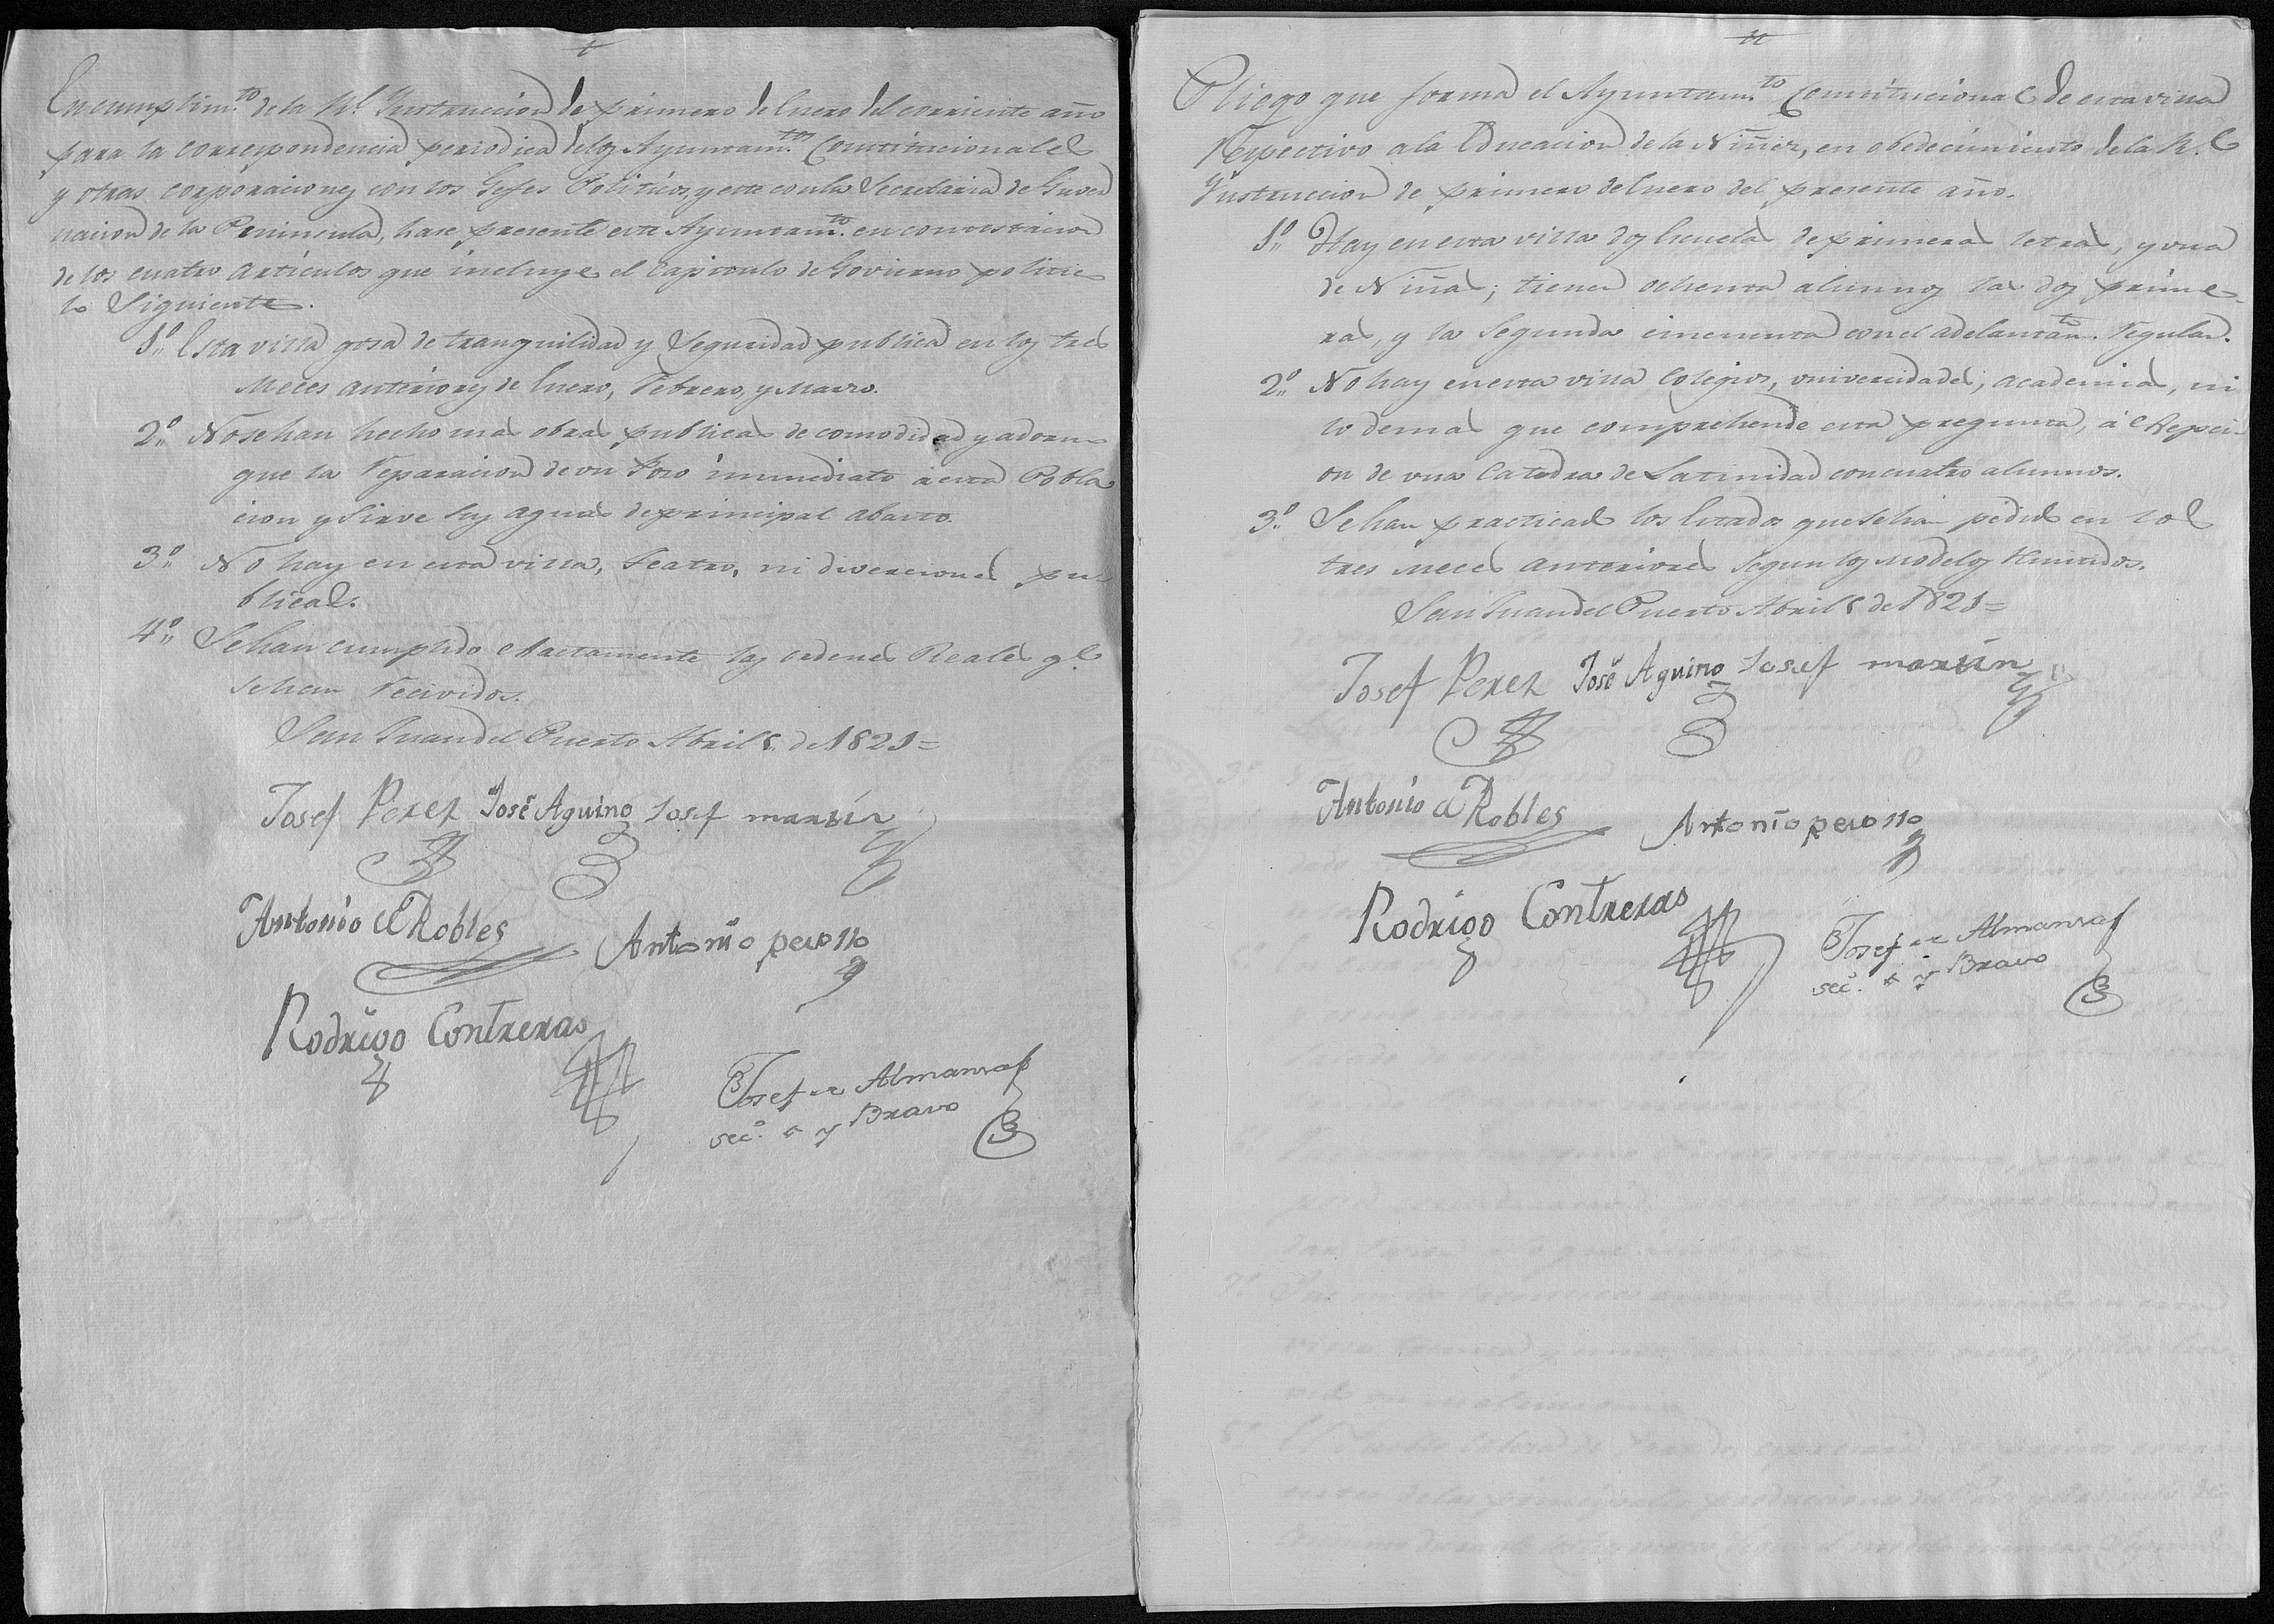 En cumplim.to de la Rl. Ynstruccion de primero de Enero del corriente año
para la correspondencia periodica de los Ayuntam.tos Constitucionales
y otras corporaciones con los Gefes Politicos, y este con la Secretaria de Gover
nacion de la Peninsula, hase presente este Ayuntam.to en contestacion
de los cuatro articulos que incluye el Capitulo de Govierno politico
lo Siguiente.
1.º Esta villa gosa de tranquilidad y Seguridad publica en los tres
Meces anteriores de Enero, Febrero, y Marzo.
2.º No se han hecho mas obras publicas de comodidad y adorno
que la Reparacion de un Poso inmediato á esta Pobla
cion y Sirve sus aguas de principal abasto.
3.º No hay en esta villa, Teatro, ni diverciones pu
blicas.
4.º Se han cumplido esactamente las ordenes Reales q.e
se han Recividos.
San Juan del Puerto Abril 8 de 1821=
Josef Perez José Aquino Josef martin
Antonio de Robles Antonio perollo
Rodrigo Contreras
Josef de Almansa
sec.º y Bravo
Pliego que forma el Ayuntam.to Constitucional de esta villa
Respectivo a la Educacion de la Niñez, en obedecimiento de la R.l
Ynstruccion de primero de Enero del presente año.
1.º Hay en esta villa dos Escuelas de primeras letras, y una
de Niñas; tienen ochenta alumnos las dos prime-
ras, y la Segunda cincuenta con el adelantam.to Regular.
2.º No hay en esta villa Colegios, univercidades, academias, ni
lo demas que comprehende esta pregunta, á Esepci-
on de una Catedra de Latinidad con cuatro alumnos.
3.º Se han practicado los Estados que se han pedido en los
tres Meces anteriores Segun los Modelos Remitidos.
San Juan del Puerto Abril 8 de 1821=
Josef Perez José Aquino Josef martin
Antonio de Robles Antonio perollo
Rodrigo Contreras
Josef de Almansa
sec.º y Bravo